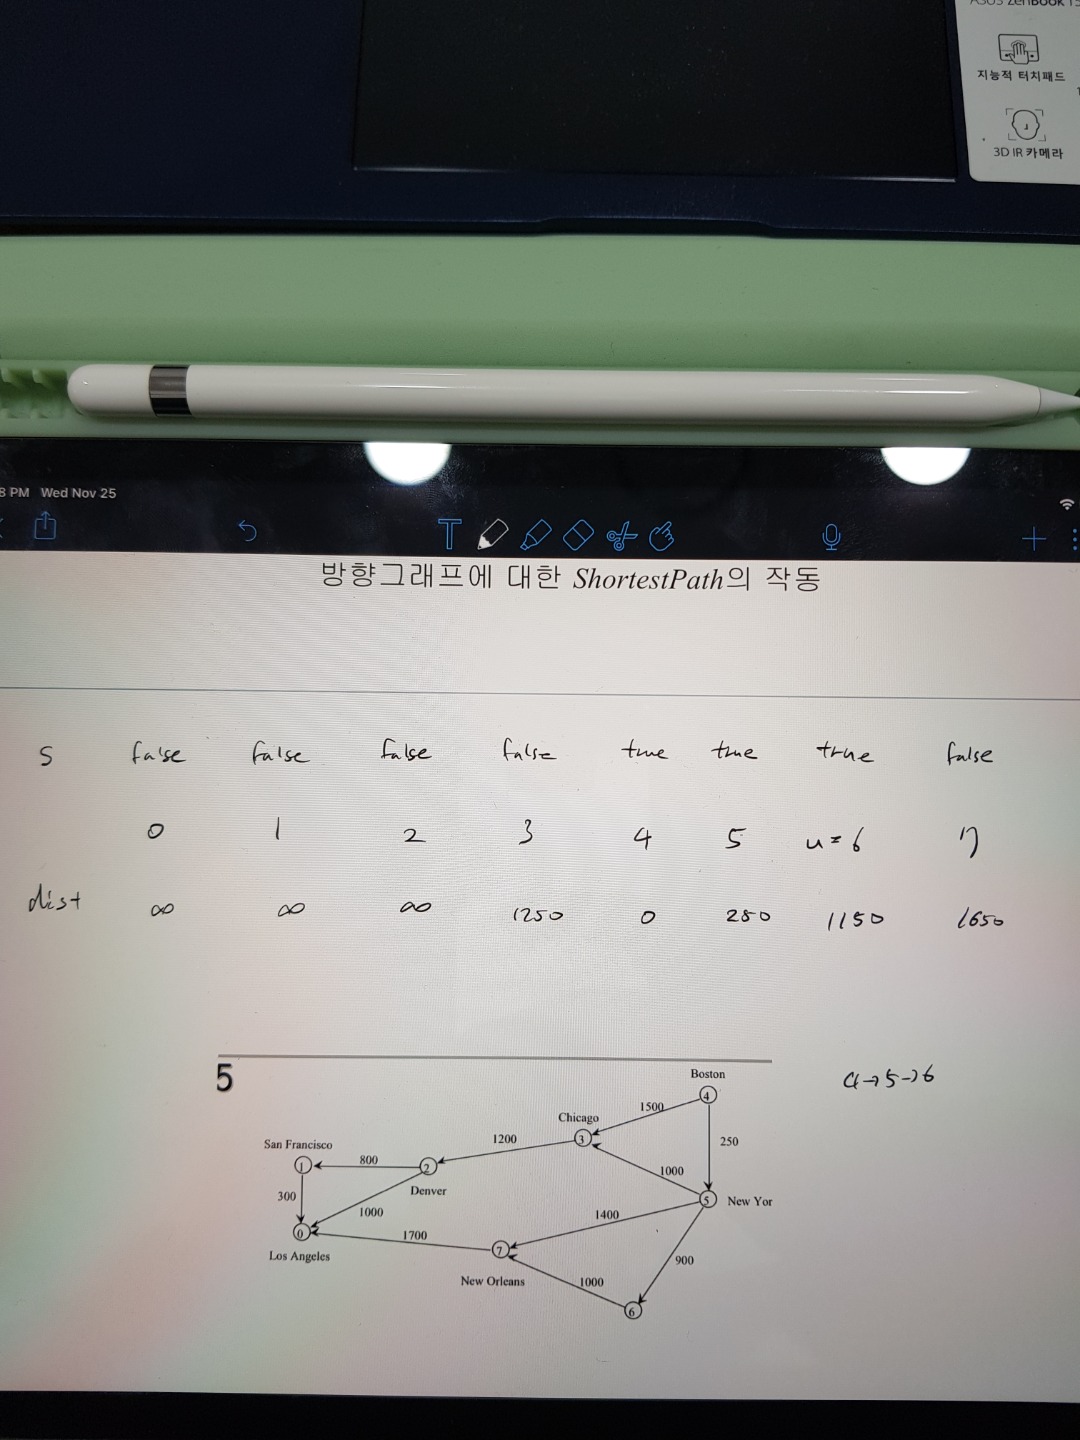 ASUS ZenBook 15
지능적 터치패드
3D IR 카메라
8 PM Wed Nov 25
T
방향그래프에 대한 ShortestPath의 작동
S false false false false true true true false
0 1 2 3 4 5 u=6 7
dist ∞ ∞ ∞ 1250 0 250 1150 1650
5
4→5→6
Boston
4
1500
Chicago
3
250
San Francisco
1200
1
800
2
1000
Denver
300
5
New Yor
1000
1400
0
1700
Los Angeles
7
900
New Orleans
1000
6